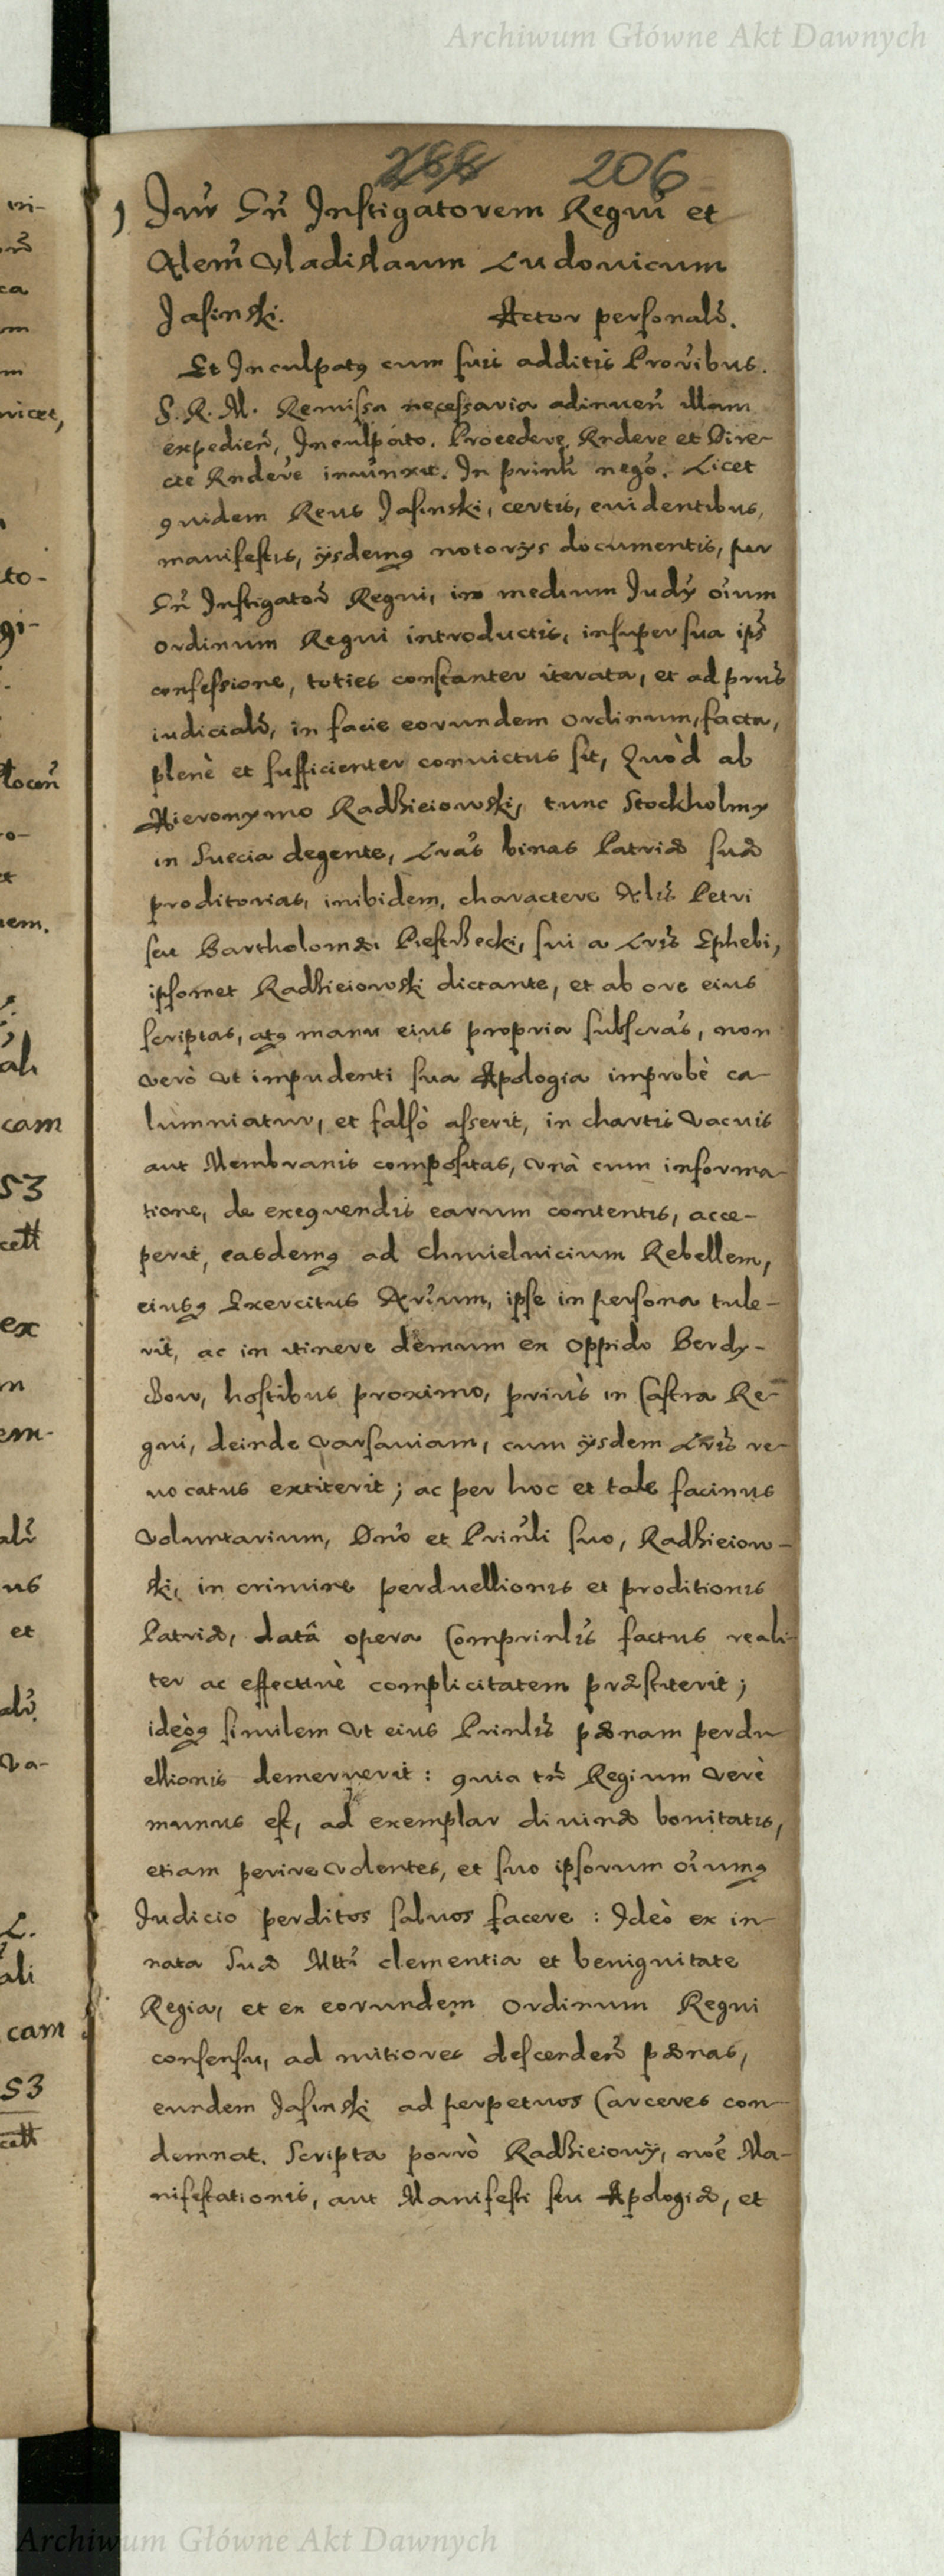 Archiwum Główne Akt Dawnych
288 206
Inr̃ Gñ Instigatorem Regni et
Alem̃ Vladislaum Ludovicum
Jasinski. Actor personalr̃.
Et Inculpatꝫ cum suis additis Prõribus.
S. R. M. Remissa necessaria adinuen̄ illam
expedien̄, Inculpato. Procedere Rndere et Dire-
cte Rndere iniũnxit. In prinli nego. Licet
quidem Reus Jasinski, certis, euidentibus,
manifestis, ijsdemqꝫ notorijs documentis, per
Gñ Instigator̃ Regni, in medium Iudÿ oĩum
ordinum Regni introductis, insuper sua ips̃
confessione, toties constanter iterata, et ad prns̃
iudicialr̃, in facie eorundem ordinum, facta,
plenè et sufficienter conuictus sit, Quòd ab
Hieronymo Radzieiowski, tunc Stockholmÿ
in Suecia degente, Lrãs binas Patriæ suæ
proditorias, inibidem, charactere Alis̃ Petri
seu Bartholomæi Piestrzecki, sui a Lris̃ Ephebi,
ipsomet Radzieiowski dictante, et ab ore eius
scriptas, atqꝫ manu eius propria subscrãs, non
verò vt impudenti sua Apologia improbè ca-
lumniatur, et falsò asserit, in chartis vacuis
aut Membranis compositas, vnà cum informa-
tione, de exequendis earum contentis, acce-
perit, easdemqꝫ ad Chmielnicium Rebellem,
eiusqꝫ Exercitus Arĩum, ipse in persona tule-
rit, ac in itinere demum ex oppido Berdy-
czow, hostibus proximo, priùs in Castra Re-
gni, deinde Varsauiam, cum ijsdem Lris̃ re-
uocatus extiterit; ac per hoc et tale facinus
voluntarium, Dño et Prinl̃i suo, Radzieiow-
ski, in crimine perduellionis et proditionis
Patriæ, datâ opera Comprinlis̃ factus reali-
ter ac effectiuè complicitatem præstiterit;
ideòqꝫ similem vt eius Prinlis̃ pœnam perdu-
ellionis demeruerit: quia tñ Regium verè
munus est, ad exemplar diuinæ bonitatis,
etiam perire volentes, et suo ipsorum oĩumqꝫ
Iudicio perditos saluos facere: Ideò ex in-
nata Suæ Mtti clementia et benignitate
Regia, et ex eorundem Ordinum Regni
consensu, ad mitiores descenden̄ pœnas,
eundem Jasinski ad perpetuos Carceres con-
demnat. Scripta porrò Radzieiowÿ, noẽ Ma-
nifestationis, aut Manifesti seu Apologiæ, et
Archiwum Główne Akt Dawnych